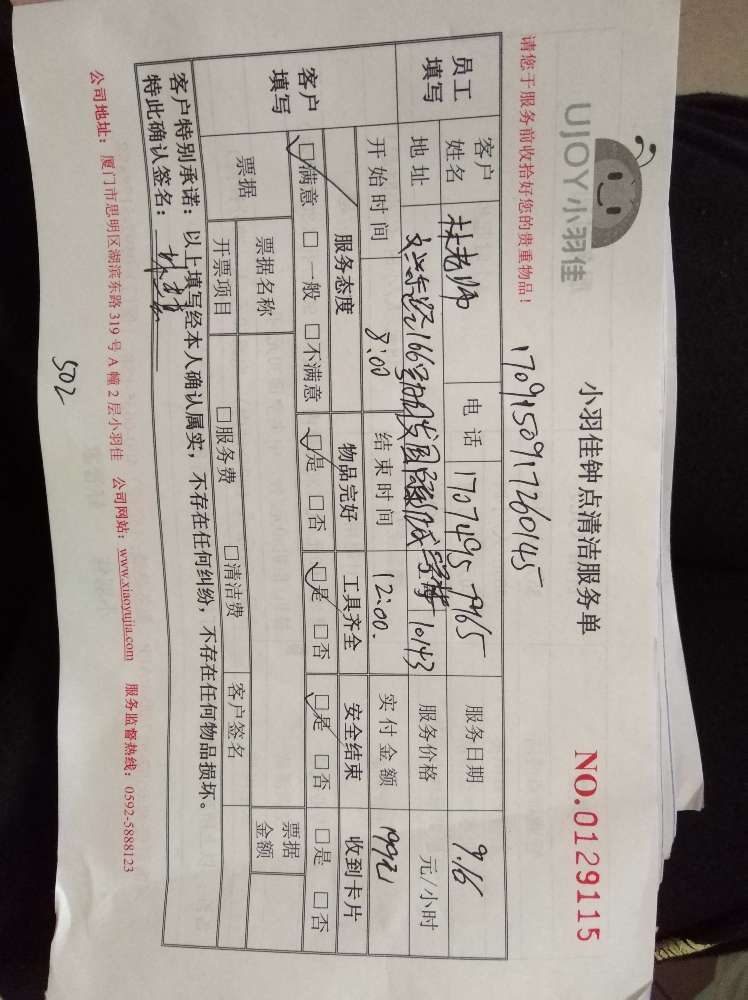 UJOY小羽佳
小羽佳钟点清洁服务单
NO.0129115
请您于服务前收拾好您的贵重物品！
1709150917260145
员工填写 客户姓名 林老师 电话 服务日期 9.16
地址 166号 10143 服务价格 元/小时
开始时间 8:00 结束时间 12:00. 实付金额
客户填写 服务态度 物品完好 工具齐全 安全结束 收到卡片
☑满意 □一般 □不满意 ☑是 □否 ☑是 □否 ☑是 □否 □是 □否
票据 票据名称 票据金额
开票项目 □服务费 □清洁费 客户签名
客户特别承诺：以上填写经本人确认属实，不存在任何纠纷，不存在任何物品损坏。
特此确认签名：
公司地址：厦门市思明区湖滨东路319号A幢2层小羽佳 公司网站：www.xiaoyujia.com 服务监督热线：0592-5888123
502